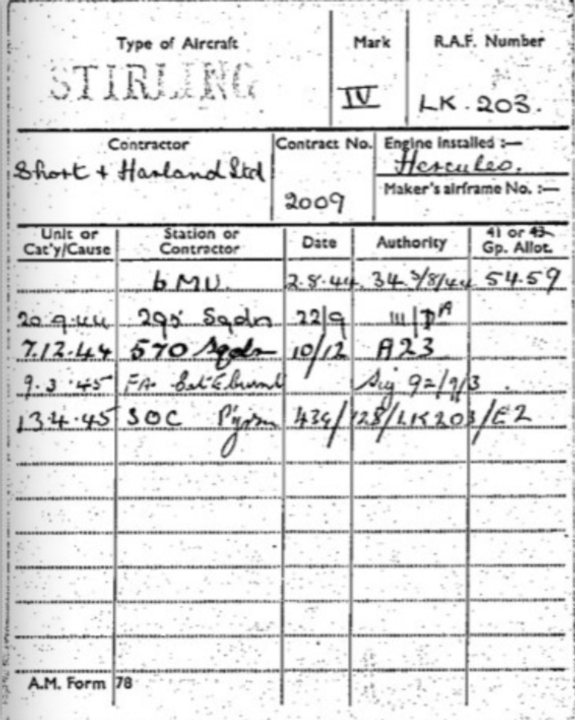 Type of Aircraft Mark R.A.F. Number
STIRLING IV LK.203.
Contractor Contract No. Engine installed :—
Short + Harland Ltd Hercules.
2009 Maker's airframe No. :—
Unit or Cat'y/Cause Station or Contractor Date Authority 41 or 43 Gp. Allot.
6 MU. 2.8.44 34 3/8/44 5459
20.9.44 295 Sqdn 22/9 111/DA
7.12.44 570 Sqdn 10/12 A23
9.3.45 FA. Cat E burnt Sig 92/9/3
13.4.45 SOC 43G/128/LK203/E2
A.M. Form 78